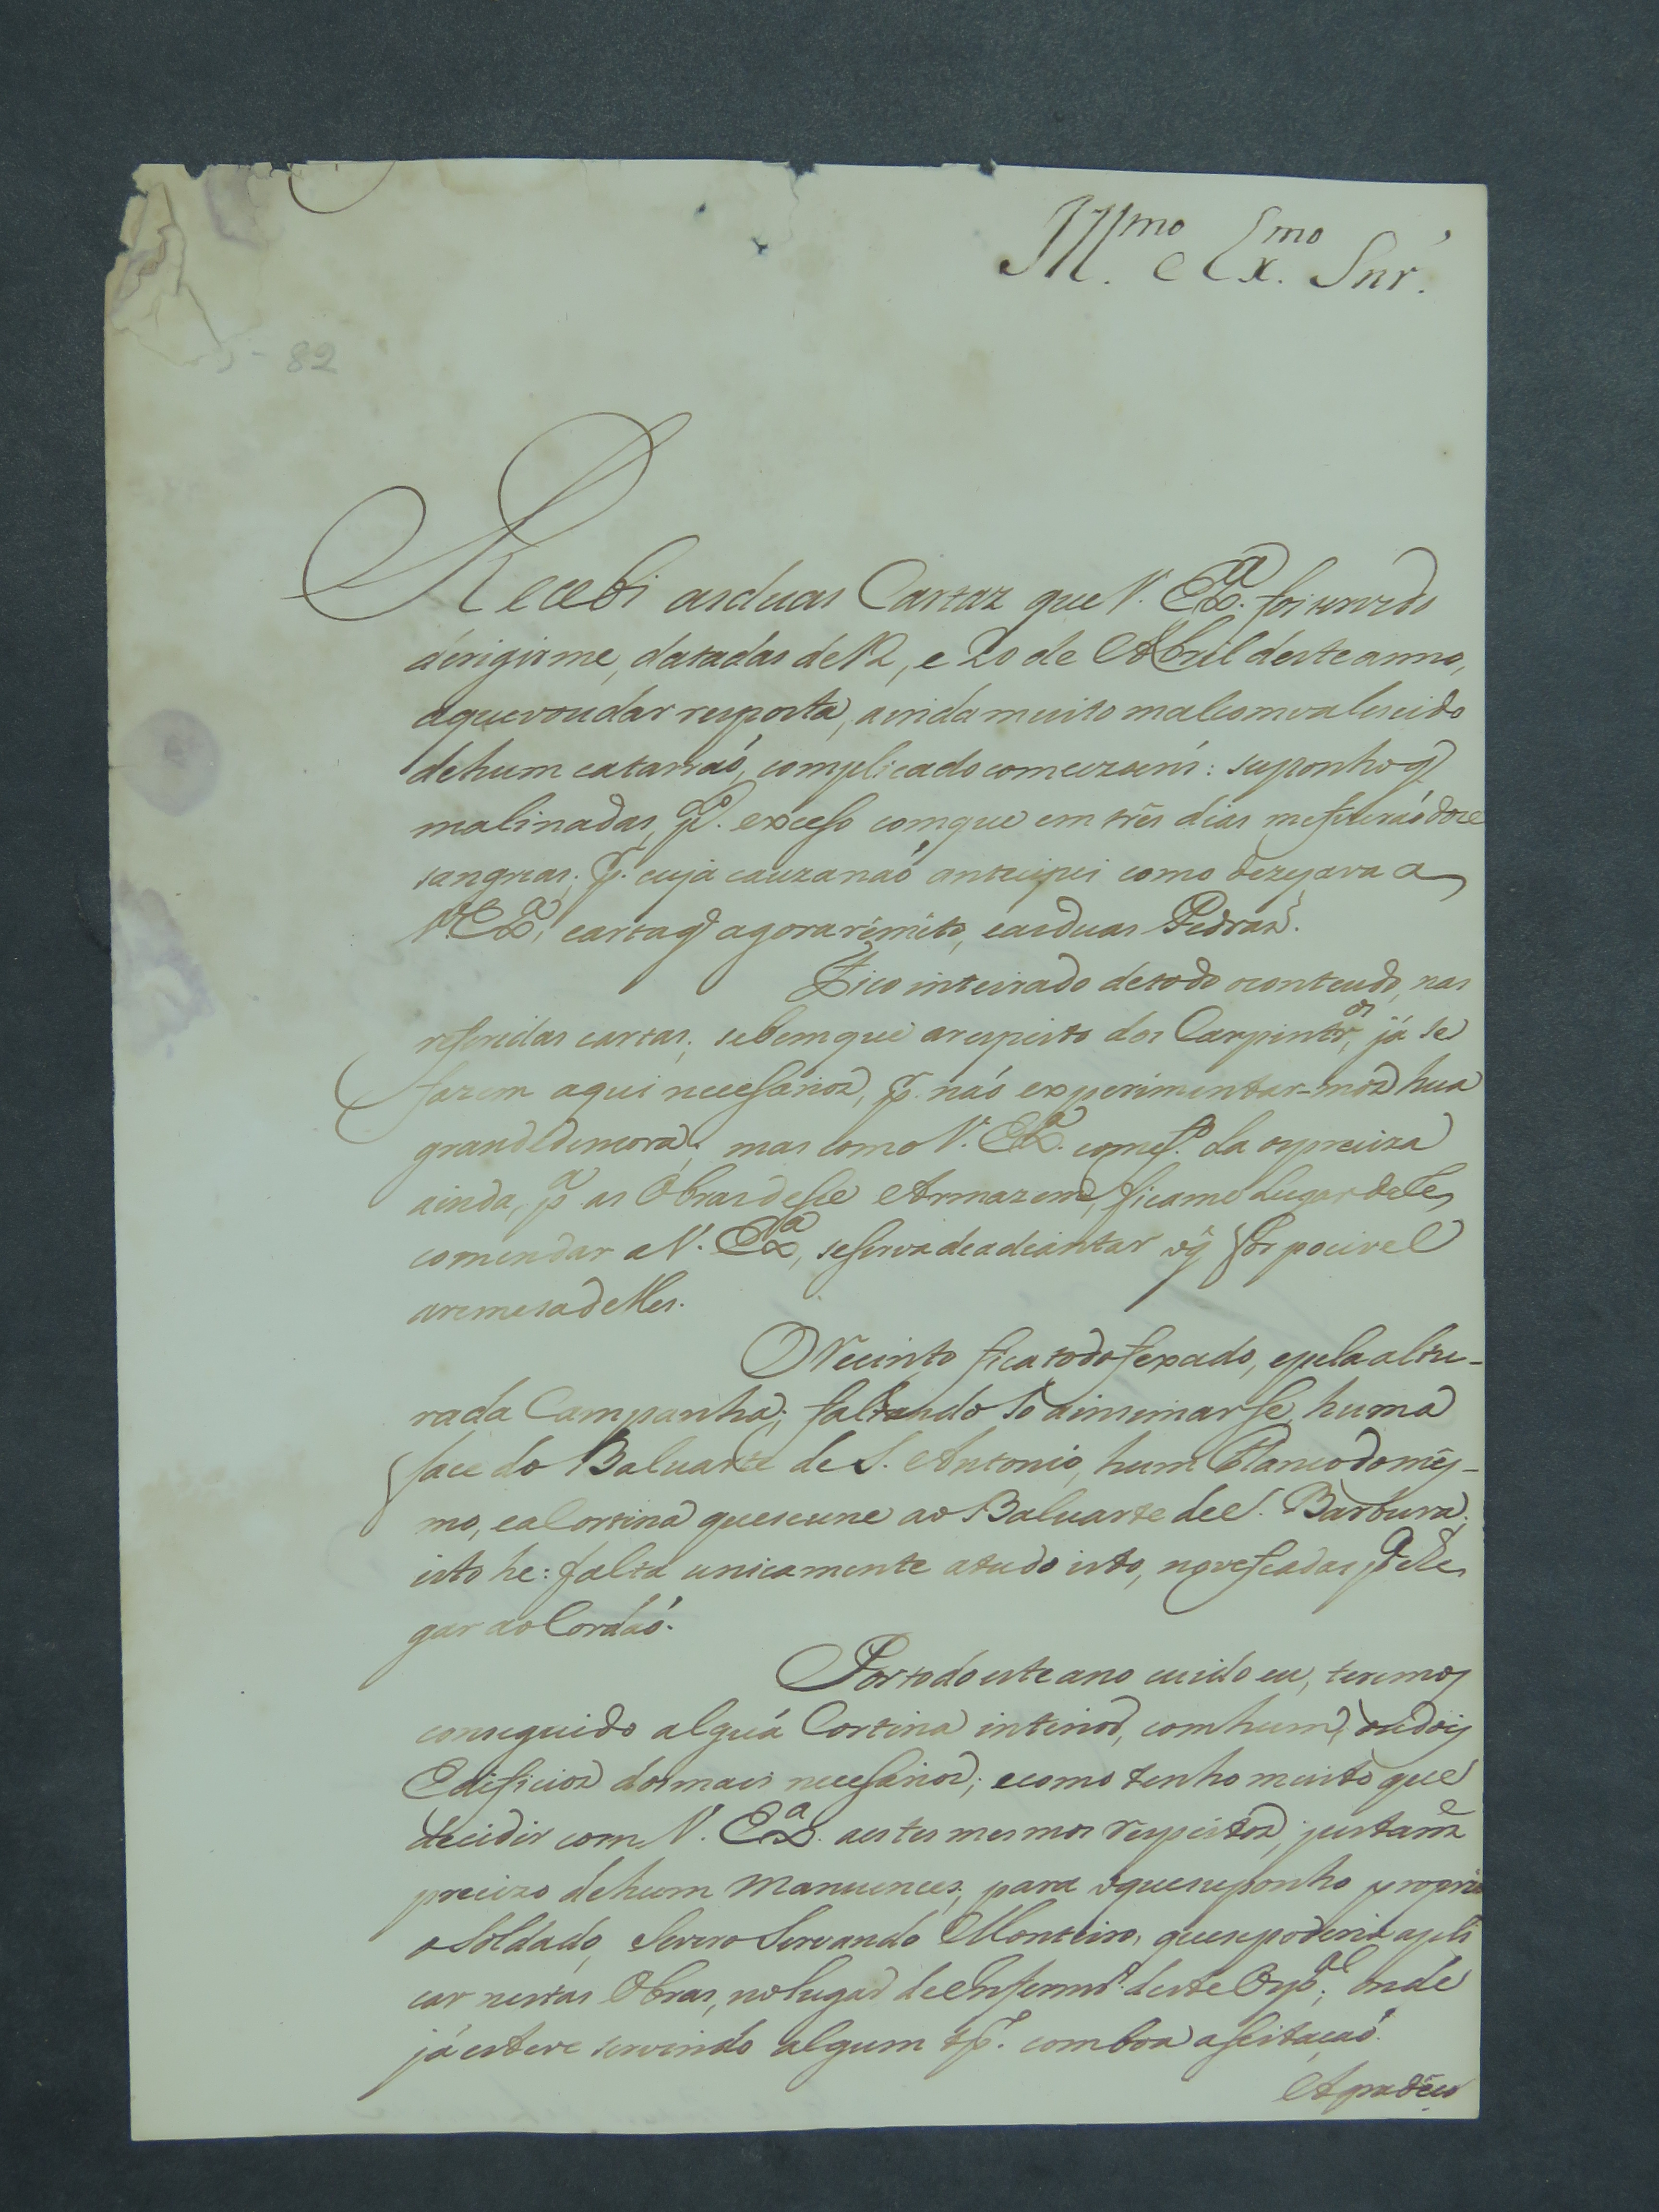 Ill.mo e Ex.mo Snr.
82
Recebi asduas Cartaz que V. Ex.a foi servido
dirigirme, datadas de 12, e 20 de Abril desteanno,
aquevoudar resposta, ainda muito malcomvalescido
dehum catarraó, complicado comcezoens: suponho q
malinadas, p.o exceso comque em três dias mefizeraó doze
sangrias; p. cuja cauzanaó antecipei como dezejava a
V. Ex.a, cartaq agora rimito, easduas Pedraz.
Fico inteirado detodo ocontendo, nas
referidas cartas; sebemque arespeito dos Carpintr.os, já se
fazem aqui necesarioz, p. naó experimentar-moz hua
grandedemora; mas como V. Ex.a comef.o la ospreciza
ainda, p.a as Obrasdesse Armazem, ficame lugar dele
comendar a V. Ex.a, seserva deadeantar oq for pocivel
aremesadelles.
ORecinto ficatodofexado, epelaaltu-
rada Campanha; faltando só aincimarse, huma
face do Baluarte de S. Antonio, hum Flancodomes-
mo, eaCortina queseune ao Baluarte de S. Barbura;
isto he: falta unicamente atudo isto, nove feadas p.a che
gar ao Cordáó.
Portodoesteano cuido eu, teremos
conseguido alguá Cortina interior, comhum, oudois
Edificioz dosmais necesarioz; ecomo tenho muito que
decidir com V. Ex.a aestes mesmos respeitoz, justam.e
precizo dehum Manuences, para oquesuponho proprio
o Soldado, Severo Servando Monteiro, quesepoderia apli
car nestas Obras, nolugar de Enfermr.o deste Osp.al; onde
já esteve servindo algum tp.o comboa aseitaçaó.
Agradéço